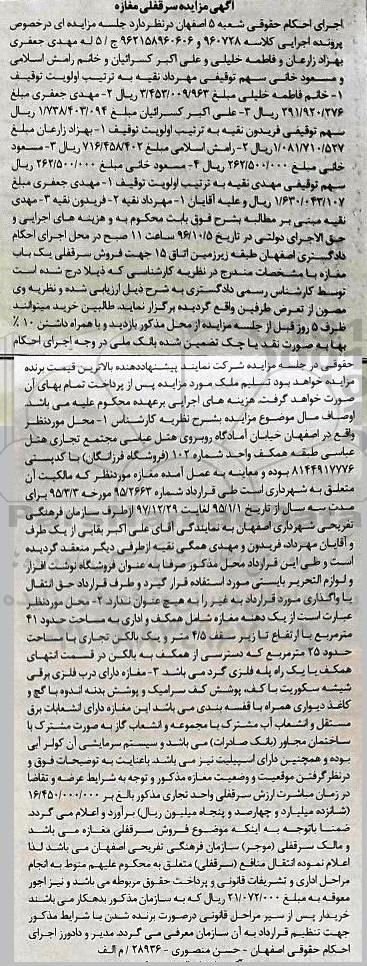 آگهی مزایده سرقفلی مغازه
اجرای احکام حقوقی شعبه ۵ اصفهان در نظر دارد جلسه مزایده ای در خصوص
پرونده اجرایی کلاسه ۹۶۰۷۲۸ و ۹۶۲۱۵۸۹۶۰۶۰۶ ج / ۵ له مهدی جعفری
بهزاد زارعان و فاطمه خلیلی و علی اکبر کسرائیان و خانم رامش اسلامی
و مسعود خانی سهم توقیفی مهرداد نقیه به ترتیب اولویت توقیف
۱- خانم فاطمه خلیلی مبلغ ۳/۴۵۳/۰۰۹/۹۶۳ ریال ۲- مهدی جعفری مبلغ
۲۹۱/۹۲۰/۳۷۶ ریال ۳- علی اکبر کسرائیان مبلغ ۱/۷۳۸/۴۰۳/۰۹۴ ریال
سهم توقیفی فریدون نقیه به ترتیب اولویت توقیف ۱- بهزاد زارعان مبلغ
۱/۰۸۱/۷۱۰/۵۲۷ ریال ۲- رامش اسلامی مبلغ ۷۱۶/۴۵۸/۴۰۲ ریال ۳- مسعود
خانی مبلغ ۲۶۲/۵۰۰/۰۰۰ ریال ۴- مسعود خانی مبلغ ۲۶۲/۵۰۰/۰۰۰ ریال
سهم توقیفی مهدی نقیه به ترتیب اولویت توقیف ۱- مهدی جعفری مبلغ
۱/۶۳۰/۰۴۳/۱۰۷ ریال و علیه آقایان ۱- مهرداد نقیه ۲- فریدون نقیه ۳- مهدی
نقیه مبنی بر مطالبه بشرح فوق بابت محکوم به و هزینه های اجرایی و
حق الاجرای دولتی در تاریخ ۹۶/۱۰/۵ ساعت ۱۱ صبح در محل اجرای احکام
دادگستری اصفهان طبقه زیرزمین اتاق ۱۵ جهت فروش سرقفلی یک باب
مغازه با مشخصات مندرج در نظریه کارشناسی که ذیلا درج شده است
توسط کارشناس رسمی دادگستری به شرح ذیل ارزیابی شده و نظریه وی
مصون از تعرض طرفین واقع گردیده برگزار نماید. طالبین خرید میتوانند
ظرف ۵ روز قبل از جلسه مزایده از محل مذکور بازدید و با همراه داشتن ۱۰ ٪
بها به صورت نقد یا چک تضمین شده بانک ملی در وجه اجرای احکام
حقوقی در جلسه مزایده شرکت نمایند پیشنهاددهنده بالاترین قیمت برنده
مزایده خواهد بود تسلیم ملک مورد مزایده پس از پرداخت تمام بهای آن
صورت خواهد گرفت. هزینه های اجرایی برعهده محکوم علیه می باشد
اوصاف مال موضوع مزایده بشرح نظریه کارشناس ۱- محل موردنظر
واقع در اصفهان خیابان آمادگاه روبروی هتل عباسی مجتمع تجاری هتل
عباسی طبقه همکف واحد شماره ۱۰۲ (فروشگاه فرزانگان) با کدپستی
۸۱۴۴۹۱۷۷۷۶ بوده و معاینه به عمل آمده مغازه موردنظر که مالکیت آن
متعلق به شهرداری است طی قرارداد شماره ۹۵/۲۶۶۳ مورخه ۹۵/۳/۳ برای
مدت سه سال از تاریخ ۹۵/۱/۱ لغایت ۹۷/۱۲/۲۹ از طرف سازمان فرهنگی
تفریحی شهرداری اصفهان به نمایندگی آقای علی اکبر بقایی از یک طرف
و آقایان مهرداد، فریدون و مهدی همگی نقیه از طرفی دیگر منعقد گردیده
است و طی این قرارداد محل مذکور صرفا به عنوان فروشگاه نوشت افزار
و لوازم التحریر بایستی مورد استفاده قرار گیرد و طرف قرارداد حق انتقال
یا واگذاری مورد قرارداد به غیر را به هیچ عنوان ندارد. ۲- محل موردنظر
عبارت است از یک دهنه مغازه شامل همکف و اداری به مساحت حدود ۴۱
مترمربع با ارتفاع تا زیر سقف ۴/۵ متر و یک بالکن تجاری با مساحت
حدود ۲۵ مترمربع که دسترسی از همکف به بالکن در قسمت انتهای
همکف با یک راه پله فلزی گرد می باشد ۳- مغازه دارای درب فلزی برقی
شیشه سکوریت با کف، پوشش کف سرامیک و پوشش بدنه اندوه با گچ و
کاغذ دیواری همراه با قفسه بندی می باشد این مغازه دارای انشعابات برق
مستقل و انشعاب آب مشترک با مجموعه و انشعاب گاز به صورت مشترک با
ساختمان مجاور (بانک صادرات) می باشد و سیستم سرمایشی آن کولر آبی
بوده و همچنین دارای اسپیلیت نیز می باشد. باعنایت به توضیحات فوق و
در نظر گرفتن موقعیت و وضعیت مغازه مذکور و توجه به شرایط عرضه و تقاضا
در زمان مباشرت ارزش سرقفلی واحد تجاری مذکور بالغ بر ۱۶/۴۵۰/۰۰۰/۰۰۰
(شانزده میلیارد و چهارصد و پنجاه میلیون ریال) برآورد و اعلام می گردد.
ضمنا باتوجه به اینکه موضوع فروش سرقفلی مغازه می باشد
و مالک سرقفلی (موجر) سازمان فرهنگی تفریحی اصفهان می باشد لذا
اعلام نموده انتقال منافع (سرقفلی) متعلق به محکوم علیهم منوط به انجام
مراحل اداری و تشریفات قانونی و پرداخت حقوق مربوطه می باشد و نیز اجور
معوقه به مبلغ ۲۱/۰۷۲/۰۰۰ ریال که به سازمان مذکور بدهکار می باشند
خریدار پس از سیر مراحل قانونی درصورت برنده شدن با شرایط مذکور
جهت تنظیم قرارداد به آن سازمان معرفی می گردد. مدیر و دادورز اجرای
احکام حقوقی اصفهان - حسن منصوری - ۲۸۹۳۶ / م الف